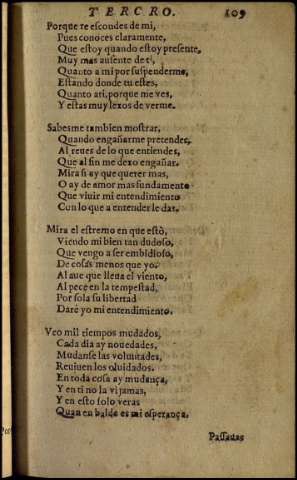 TERCRO. 109
Porque te escondes de mi,
Pues conoces claramente,
Que estoy quando estoy presente,
Muy mas ausente de ti,
Quanto a mi por suspenderme,
Estando donde tu estes,
Quanto a ti, porque me ves,
Y estas muy lexos de verme.
Sabesme tambien mostrar,
Quando engañarme pretendes,
Al reues de lo que entiendes,
Que al fin me dexo engañar.
Mira si ay que querer mas,
O ay de amor mas fundamento
Que viuir mi entendimiento
Con lo que a entender le das.
Mira el estremo en que estò,
Viendo mi bien tan dudoso,
Que vengo a ser embidioso,
De cosas menos que yo.
Al aue que lleua el viento,
Al pece en la tempestad,
Por sola su libertad
Daré yo mi entendimiento.
Veo mil tiempos mudados,
Cada dia ay nouedades,
Mudanse las voluntades,
Reuiuen los oluidados.
En toda cosa ay mudança,
Y en ti no la vi jamas,
Y en esto solo veras
Quan en balde es mi esperança.
Passauas